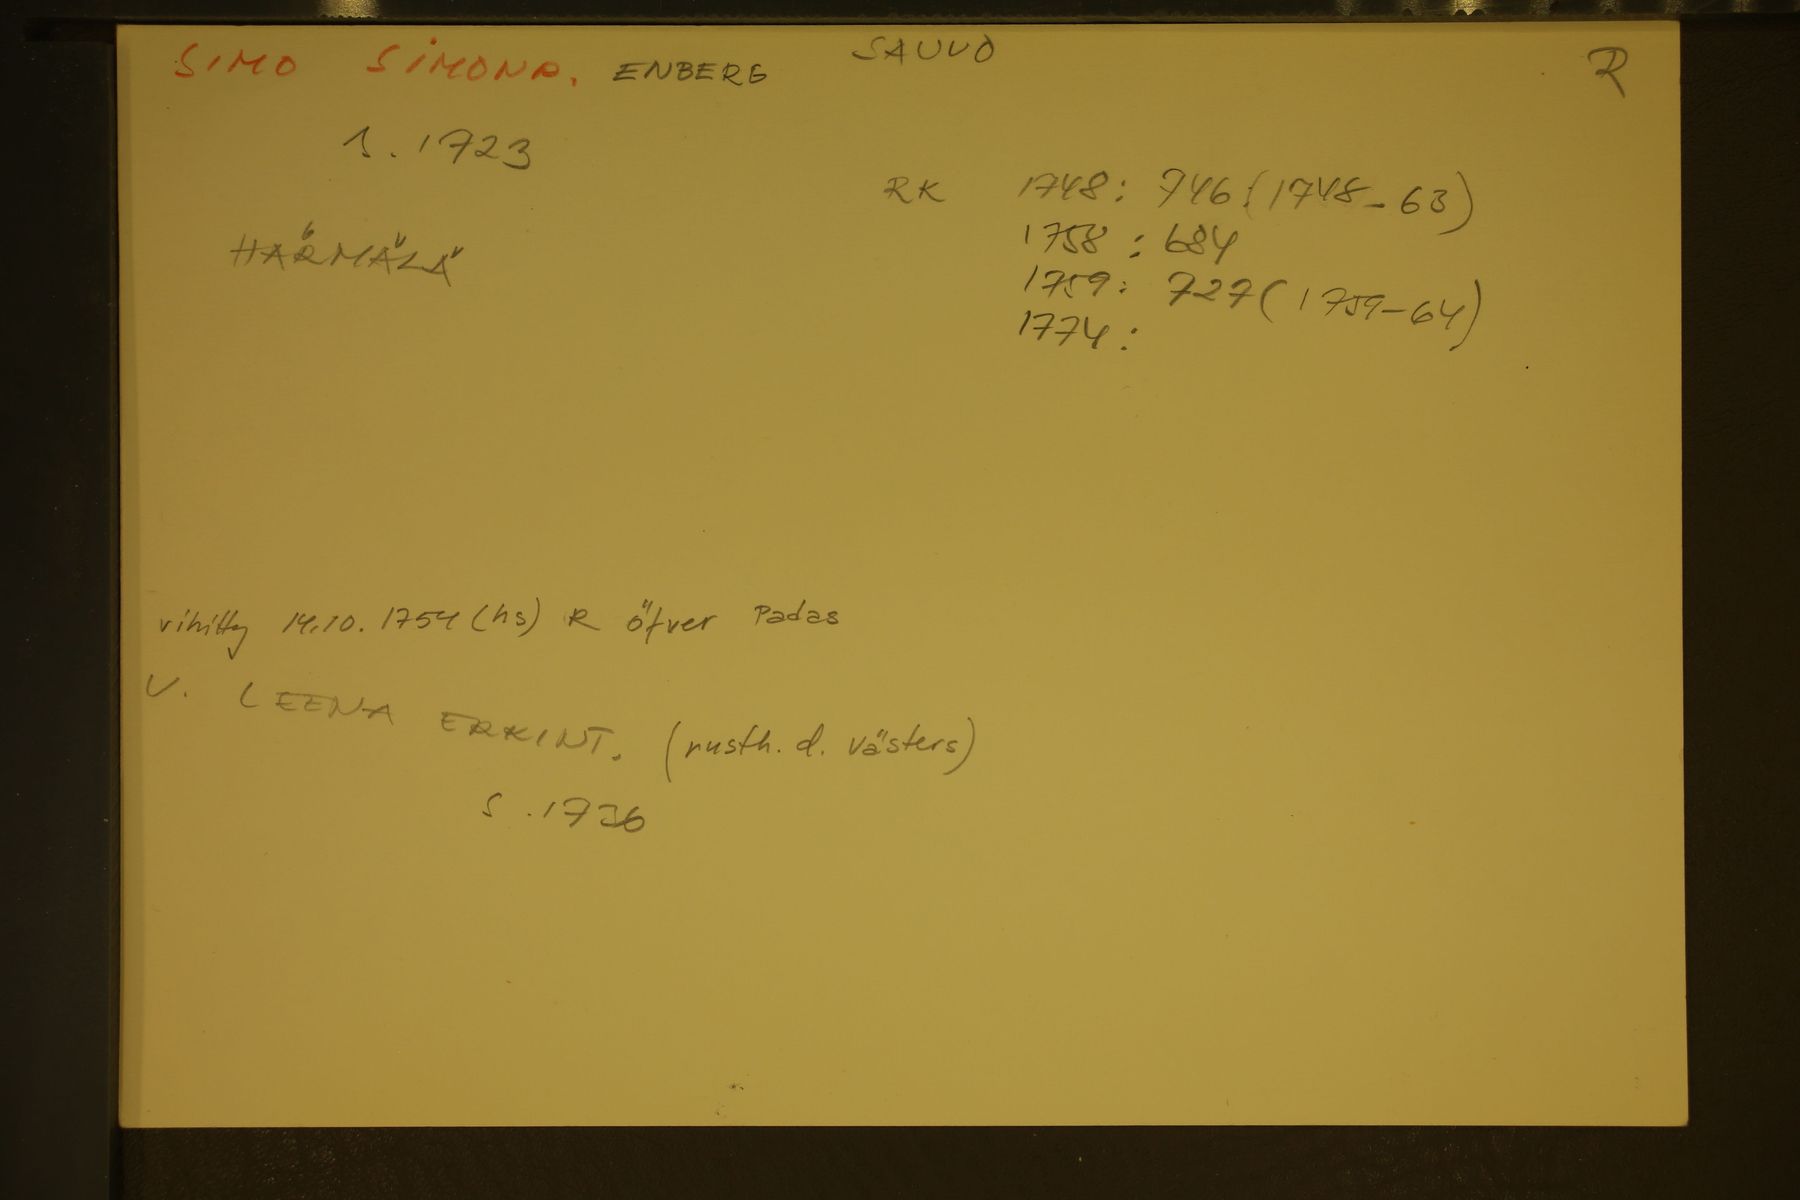 SIMO SIMONP. ENBERG SAUVO R
s. 1723
HÄRMÄLÄ
RK 1748: 746 (1748-63)
1758: 684
1759: 727 (1759-64)
1774:
vihitty 14.10.1754 (hs) R öfver Padas
V. LEENA ERKINT. (rusth. d. västers)
s. 1736